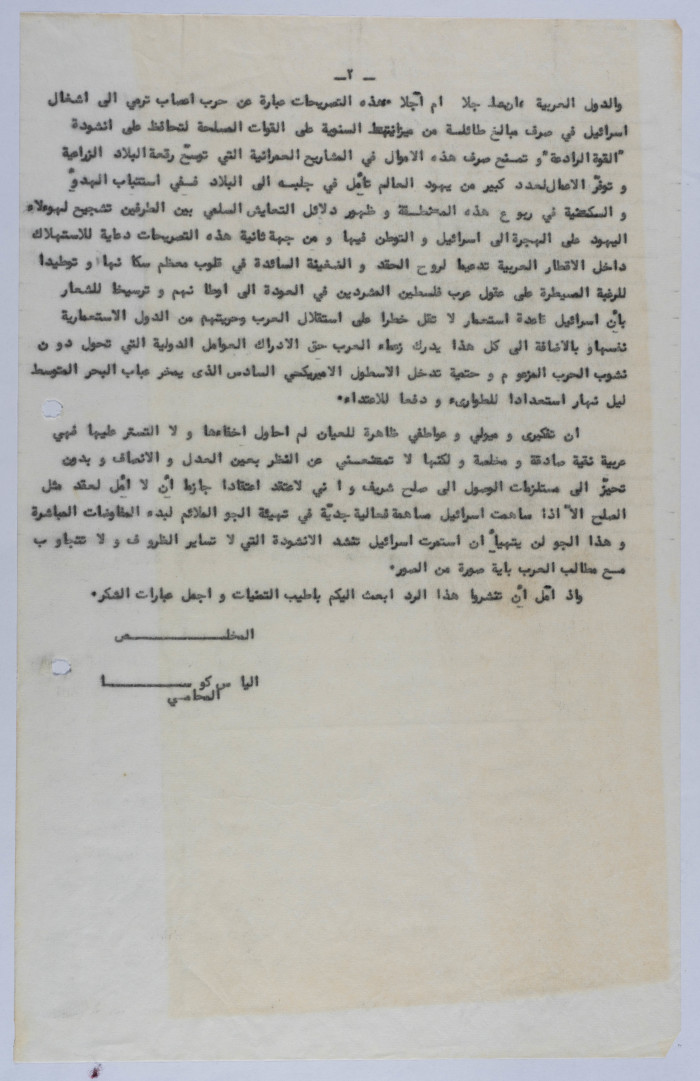 ـ ٢ ـ
والدول العربية عاجلا ام آجلا هذه التصريحات عبارة عن حرب اعصاب ترمي الى اشغال
اسرائيل في صرف مبالغ طائلسة من ميزانيتها السنوية على القوات المسلحة لتحافظ على انشودة
"القوة الرادعة" و تمنع صرف هذه الاموال في المشاريع العمرانية التي توسّع رقعة البلاد الزراعية
و توفّر الاعمال لعدد كبير من يهود العالم تأمل في جلبه الى البلاد ففي استتباب الهدوّ
و السكينة في ربوع هذه المنطقة و ظهور دلائل التعايش السلمي بين الطرفين تشجيع لهوءلاء
اليهود على الهجرة الى اسرائيل و التوطن فيها و من جهة ثانية هذه التصريحات دعاية للاستهلاك
داخل الاقطار العربية تدعيما لروح الحقد و الضغينة السائدة في قلوب معظم سكا نها و توطيدا
للرغبة المسيطرة على عقول عرب فلسطين المشردين في العودة الى اوطا نهم و ترسيخا للشعار
بأنّ اسرائيل قاعدة استعمار لا تقل خطرا على استقلال العرب وحريتهم من الدول الاستعمارية
نفسها و بالاضافة الى كل هذا يدرك زعماء العرب حق الادراك العوامل الدولية التي تحول دو ن
نشوب الحرب المزعو م و حتمية تدخل الاسطول الاميريكي السادس الذى يمخر عباب البحر المتوسط
ليل نهار استعدادا للطوارىء و دفعا للاعتداء.
ان تفكيرى و ميولي و عواطفي ظاهرة للعيان لم احاول اخفاءها و لا التستر عليها فهي
عربية نقية صادقة و مخلصة و لكنها لا تمنعني عن النظر بعين العدل و الانصاف و بدون
تحيّز الى مستلزمات الوصول الى صلح شريف و ا ني لاعتقد اعتقادا جازما أنّ لا امل لعقد مثل
الصلح الاّ اذا ساهمت اسرائيل مساهمة فعالية جديّة في تهيئة الجو الملائم لبدء المفاوضات المباشرة
و هذا الجو لن يتهيأ ان استمرت اسرائيل تنشد الانشودة التي لا تساير الظروف و لا تتجاو ب
مسع مطالب العرب باية صورة من الصور.
واذ آمل أنّ تنشروا هذا الرد ابعث اليكم باطيب التمنيات و اجمل عبارات الشكر.
المخلـــــــــــــص
اليا س كو ســــــــــا
المحامـي